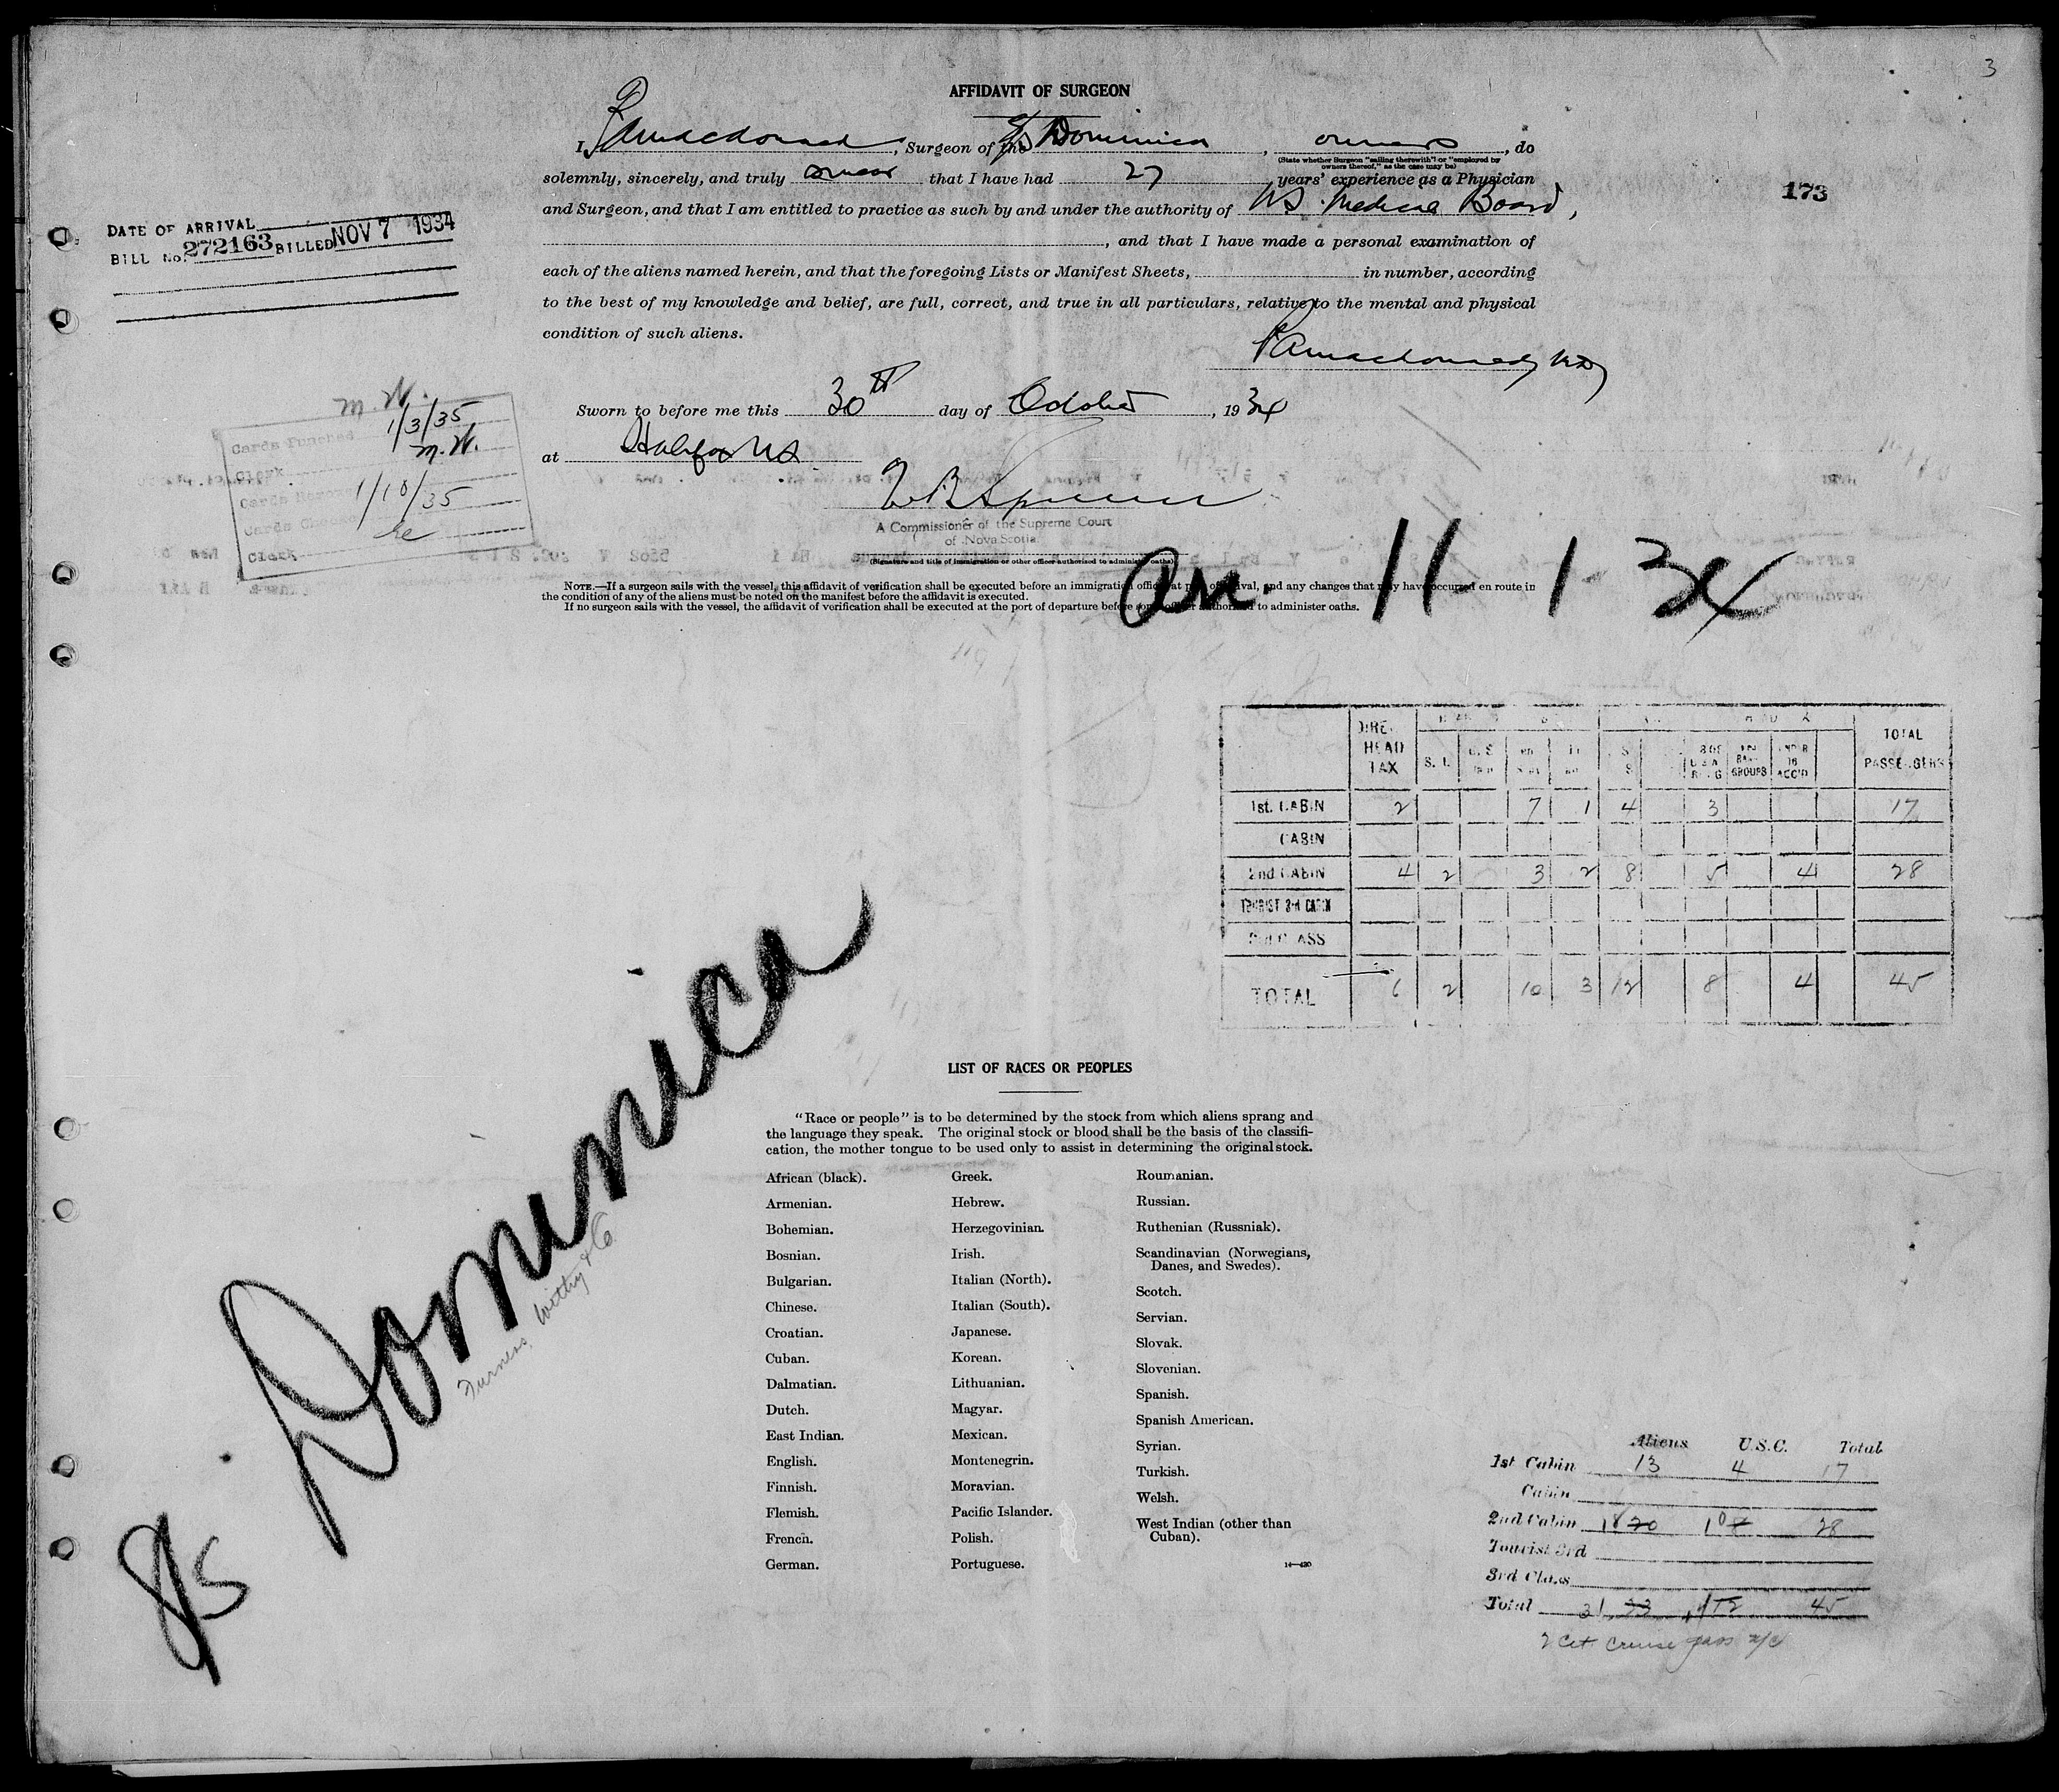 3
AFFIDAVIT OF SURGEON
I, Macdonald, Surgeon of the S/S Dominica, owners, do
(State whether Surgeon "sailing therewith" or "employed by owners thereof," as the case may be)
solemnly, sincerely, and truly swear that I have had 27 years' experience as a Physician
and Surgeon, and that I am entitled to practice as such by and under the authority of NS. Medical Board,
, and that I have made a personal examination of
each of the aliens named herein, and that the foregoing Lists or Manifest Sheets, in number, according
to the best of my knowledge and belief, are full, correct, and true in all particulars, relative to the mental and physical
condition of such aliens.
173
DATE OF ARRIVAL
BILL No. 272163 BILLED NOV 7 1934
Macdonald MD
Sworn to before me this 30th day of October, 1934
at Halifax NS
A Commissioner of the Supreme Court
of Nova Scotia
(Signature and title of immigration or other officer authorized to administer oaths)
M.W.
Cards Punched 1/3/35
Clerk M.W.
1/10/35
Clerk
NOTE.—If a surgeon sails with the vessel, this affidavit of verification shall be executed before an immigration officer at port of arrival, and any changes that may have occurred en route in
the condition of any of the aliens must be noted on the manifest before the affidavit is executed.
If no surgeon sails with the vessel, the affidavit of verification shall be executed at the port of departure before some officer authorized to administer oaths.
Arr. 11 - 1 - 34
HEAD TAX S. I. GROUPS TOTAL PASSENGERS
1st. CABIN 2 7 1 4 3 17
CABIN
2nd CABIN 4 2 3 2 8 5 4 28
TOURIST 3rd CABIN
3rd CLASS
TOTAL 6 2 10 3 12 8 4 45
S/S Dominica
Furness Withy & Co
LIST OF RACES OR PEOPLES
"Race or people" is to be determined by the stock from which aliens sprang and
the language they speak. The original stock or blood shall be the basis of the classifi-
cation, the mother tongue to be used only to assist in determining the original stock.
African (black).
Armenian.
Bohemian.
Bosnian.
Bulgarian.
Chinese.
Croatian.
Cuban.
Dalmatian.
Dutch.
East Indian.
English.
Finnish.
Flemish.
French.
German.
Greek.
Hebrew.
Herzegovinian.
Irish.
Italian (North).
Italian (South).
Japanese.
Korean.
Lithuanian.
Magyar.
Mexican.
Montenegrin.
Moravian.
Pacific Islander.
Polish.
Portuguese.
Roumanian.
Russian.
Ruthenian (Russniak).
Scandinavian (Norwegians,
Danes, and Swedes).
Scotch.
Servian.
Slovak.
Slovenian.
Spanish.
Spanish American.
Syrian.
Turkish.
Welsh.
West Indian (other than
Cuban).
Aliens U.S.C. Total
1st Cabin 13 4 17
Cabin
2nd Cabin 18 20 10 8 28
Tourist 3rd
3rd Class
Total 31 33 12 45